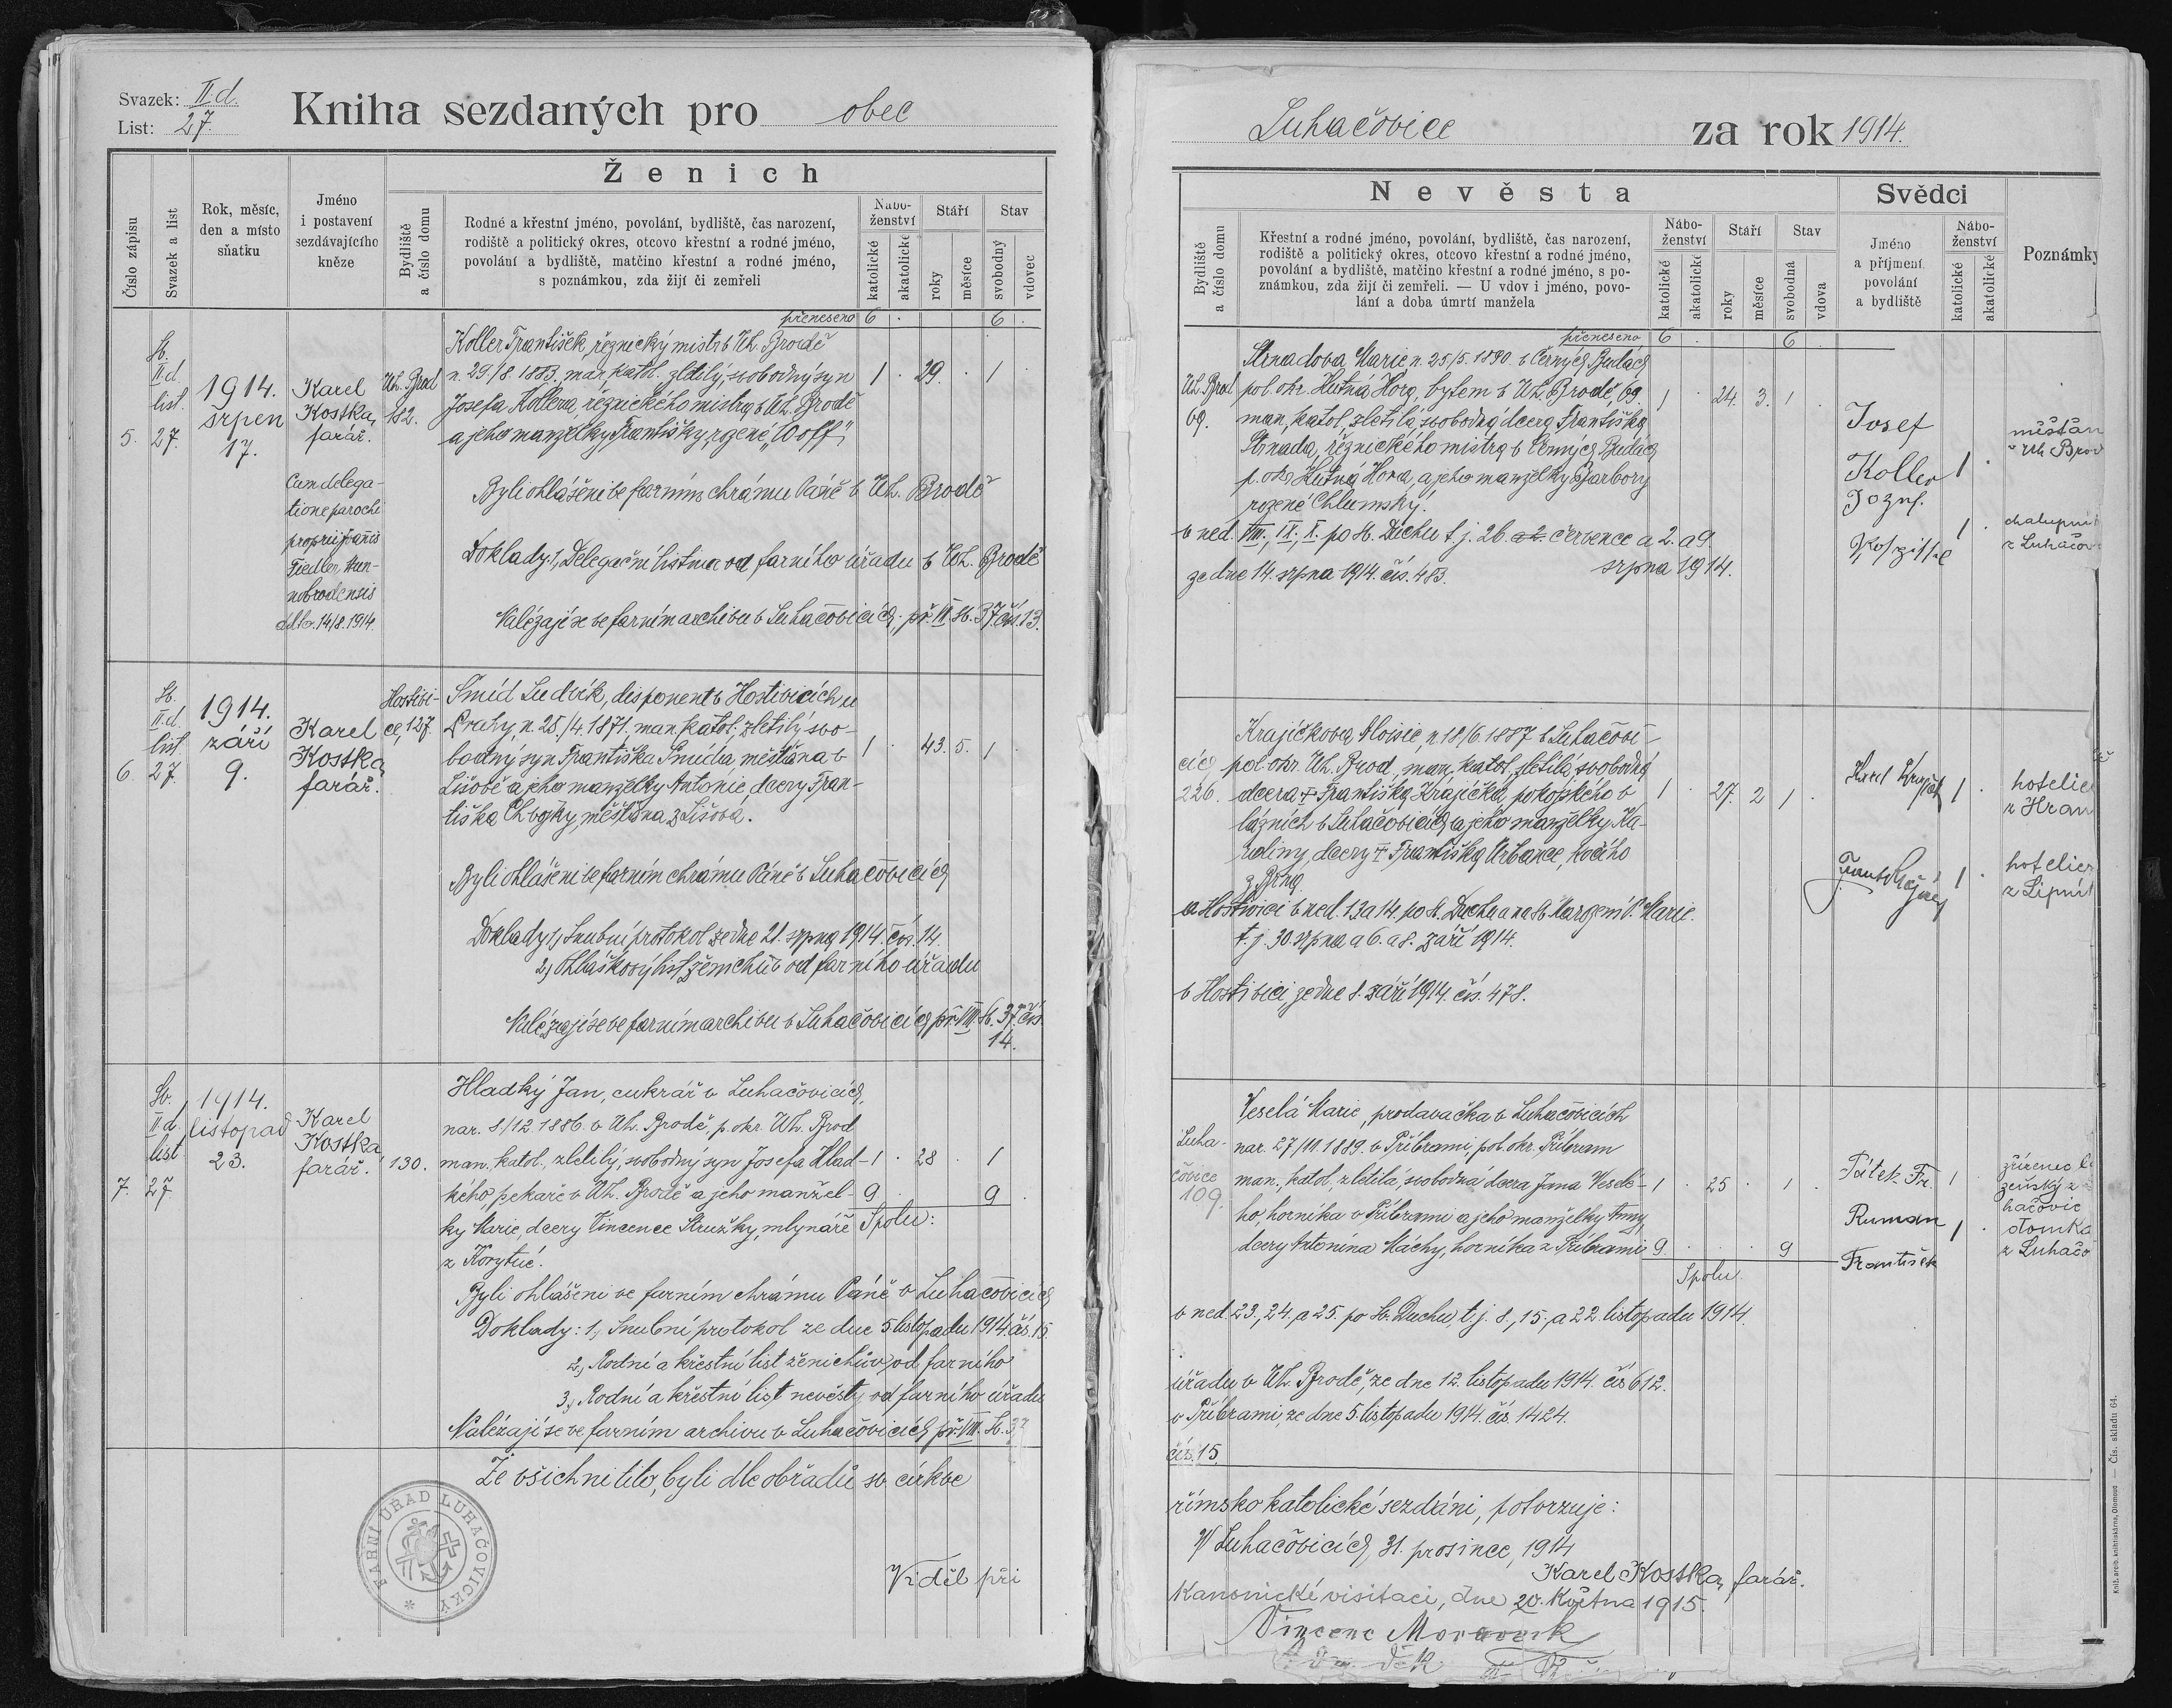 Svazek: II.d.
List: 27.
Kniha sezdaných pro obec
Luhačovice za rok 1914.
Ženich
Číslo zápisu
Svazek a list
Rok, měsíc,
den a místo
sňatku
Jméno
i postavení
sezdávajícího
kněze
Bydliště
a číslo domu
Rodné a křestní jméno, povolání, bydliště, čas narození,
rodiště a politický okres, otcovo křestní a rodné jméno,
povolání a bydliště, matčino křestní a rodné jméno,
s poznámkou, zda žijí či zemřeli
Nábo-
ženství
katolické
akatolické
Stáří
roky
měsíce
Stav
svobodný
vdovec
přeneseno 6 . 6 .
5.
Sv.
II.d.
list.
27.
1914.
srpen
17.
Karel
Kostka,
farář.
Cum delega-
tione parochi
proprii
Fiedler, Hun-
nobrodensis
ddto. 14/8. 1914.
Uh. Brod
182.
Koller František, řeznický mistr v Uh. Brodě
n. 29./8. 1883, man. katol. zletilý, svobodný syn
Josefa Kollera, řeznického mistra v Uh. Brodě
a jeho manželky Františky, rozené „Wolf“
1 . 29. . 1 .
Byli ohlášeni ve farním chrámu Páně v Uh. Brodě
Doklady: 1, Delegační listina od farního úřadu v Uh. Brodě
Nalézají se ve farním archivu v Luhačovicích, př. VII. sv. 37. čís. 13.
6.
Sv.
II.d.
list.
27.
1914.
září
9.
Karel
Kostka,
farář.
Hostivi-
ce, 127.
Šmíd Ludvík, disponent v Hostivicích u
Prahy, n. 25./4. 1871, man. katol., zletilý svo-
bodný syn Františka Šmída, měšťana v
Lišově a jeho manželky Antonie, dcery Fran-
tiška Chvojky, měšťana z Lišova.
1 . 43. 5. 1 .
Byli ohlášeni ve farním chrámu Páně v Luhačovicích
Doklady: 1, Snubní protokol ze dne 21. srpna 1914. čís. 14.
2, Ohláškový list ženichův od farního úřadu
Nalézají se ve farním archivu v Luhačovicích př. VIII. sv. 37. čís.
14.
7.
Sv.
II.d.
list
27
1914.
listopad
23.
Karel
Kostka,
farář.
130.
Hladký Jan, cukrář v Luhačovicích,
nar. 8/12 1886. v Uh. Brodě, p. okr. Uh. Brod
man. katol., zletilý, svobodný syn Josefa Hlad-
kého, pekaře v Uh. Brodě a jeho manžel-
ky Marie, dcery Vincence Stružky, mlynáře
z Korytné.
1 . 28 . 1
9 . 9 .
Spolu:
Byli ohlášeni ve farním chrámu Páně v Luhačovicích
Doklady: 1, Snubní protokol ze dne 5 listopadu 1914. čís. 15.
2, Rodní a křestní list ženichův, od farního
3, Rodní a křestní list nevěsty od farního úřadu
Nalézají se ve farním archivu v Luhačovicích př. VIII. sv. 37
Že všichni tito, byli dle obřadů sv. církve
FARNÍ ÚŘAD LUHAČOVICKÝ
Viděl při
Nevěsta
Bydliště
a číslo domu
Křestní a rodné jméno, povolání, bydliště, čas narození,
rodiště a politický okres, otcovo křestní a rodné jméno,
povolání a bydliště, matčino křestní a rodné jméno, s po-
známkou, zda žijí či zemřeli. — U vdov i jméno, povo-
lání a doba úmrtí manžela
Nábo-
ženství
katolické
akatolické
Stáří
roky
měsíce
Stav
svobodná
vdova
Svědci
Jméno
a příjmení
povolání
a bydliště
Nábo-
ženství
katolické
akatolické
Poznámky
přeneseno 6 . 6 .
Uh. Brod
69.
Strnadova Marie n. 25/5. 1890 v Černých Budách
pol. okr. Kutná Hora, bytem v Uh. Brodě, 69.
man. katol., zletilá, svobodná dcera Františka
Strnada, řeznického mistra v Černých Budách
p. okr. Kutná Hora, a jeho manželky Barbory
rozené Chlumský.
1 . 24. 3. 1 .
v ned. VIII., IX., X. po sv. Duchu t. j. 26. července a 2. a 9.
srpna 1914.
ze dne 14. srpna 1914. čís. 483.
Josef
Koller
1 .
měšťan
v Uh Brod
Jozef.
1 .
chalupní
z Luhačov
226.
Krajíčkova Aloisie, n 18/6 1887 v Luhačovi-
cích pol. okr. Uh. Brod, man. katol., zletilá, svobodná
dcera † Františka Krajíčka, pokojského v
lázních v Luhačovicích a jeho manželky Ka-
roliny, dcery † Františka Urbance, kočího
z Brna
1 . 27. 2 1 .
a Hostivici v ned. 13 a 14. po sv. Duchu a na sv. Narození P. Marie.
t. j. 30. srpna a 6. a 8. září 1914.
v Hostivici, ze dne 8. září 1914. čís. 478.
Karel Krajíček
1 .
hotelie
z Hran
1 .
hotelier
z Lipní
Luha-
čovice
109.
Veselá Marie, prodavačka v Luhačovicích
nar. 27/11. 1889. v Příbrami, pol. okr. Příbram
man., katol., zletilá, svobodná dcera Jana Vesele-
ho, horníka v Příbrami a jeho manželky Anny,
dcery Antonína Máchy, horníka z Příbrami
1 . 25 . 1 .
9 . . . 9
Spolu.
Pátek Fr.
1
zřízenec lá
zeňský z
hačovic
Ruman
František
1 .
domka
z Luhačo
v ned. 23., 24., a 25. po Sv. Duchu, t. j. 8., 15., a 22. listopadu 1914.
úřadu v Uh. Brodě, ze dne 12. listopadu 1914. čís 612.
v Příbrami, ze dne 5. listopadu 1914. čís. 1424.
čís. 15.
římsko katolické sezdáni, potvrzuje:
V Luhačovicích, 31. prosince, 1914
Karel Kostka, farář.
Kanonické visitaci, dne 20. Května 1915.
Vincenc
Knih. arcib. knihtiskárna, Olomouc — Čís. skladu 64.